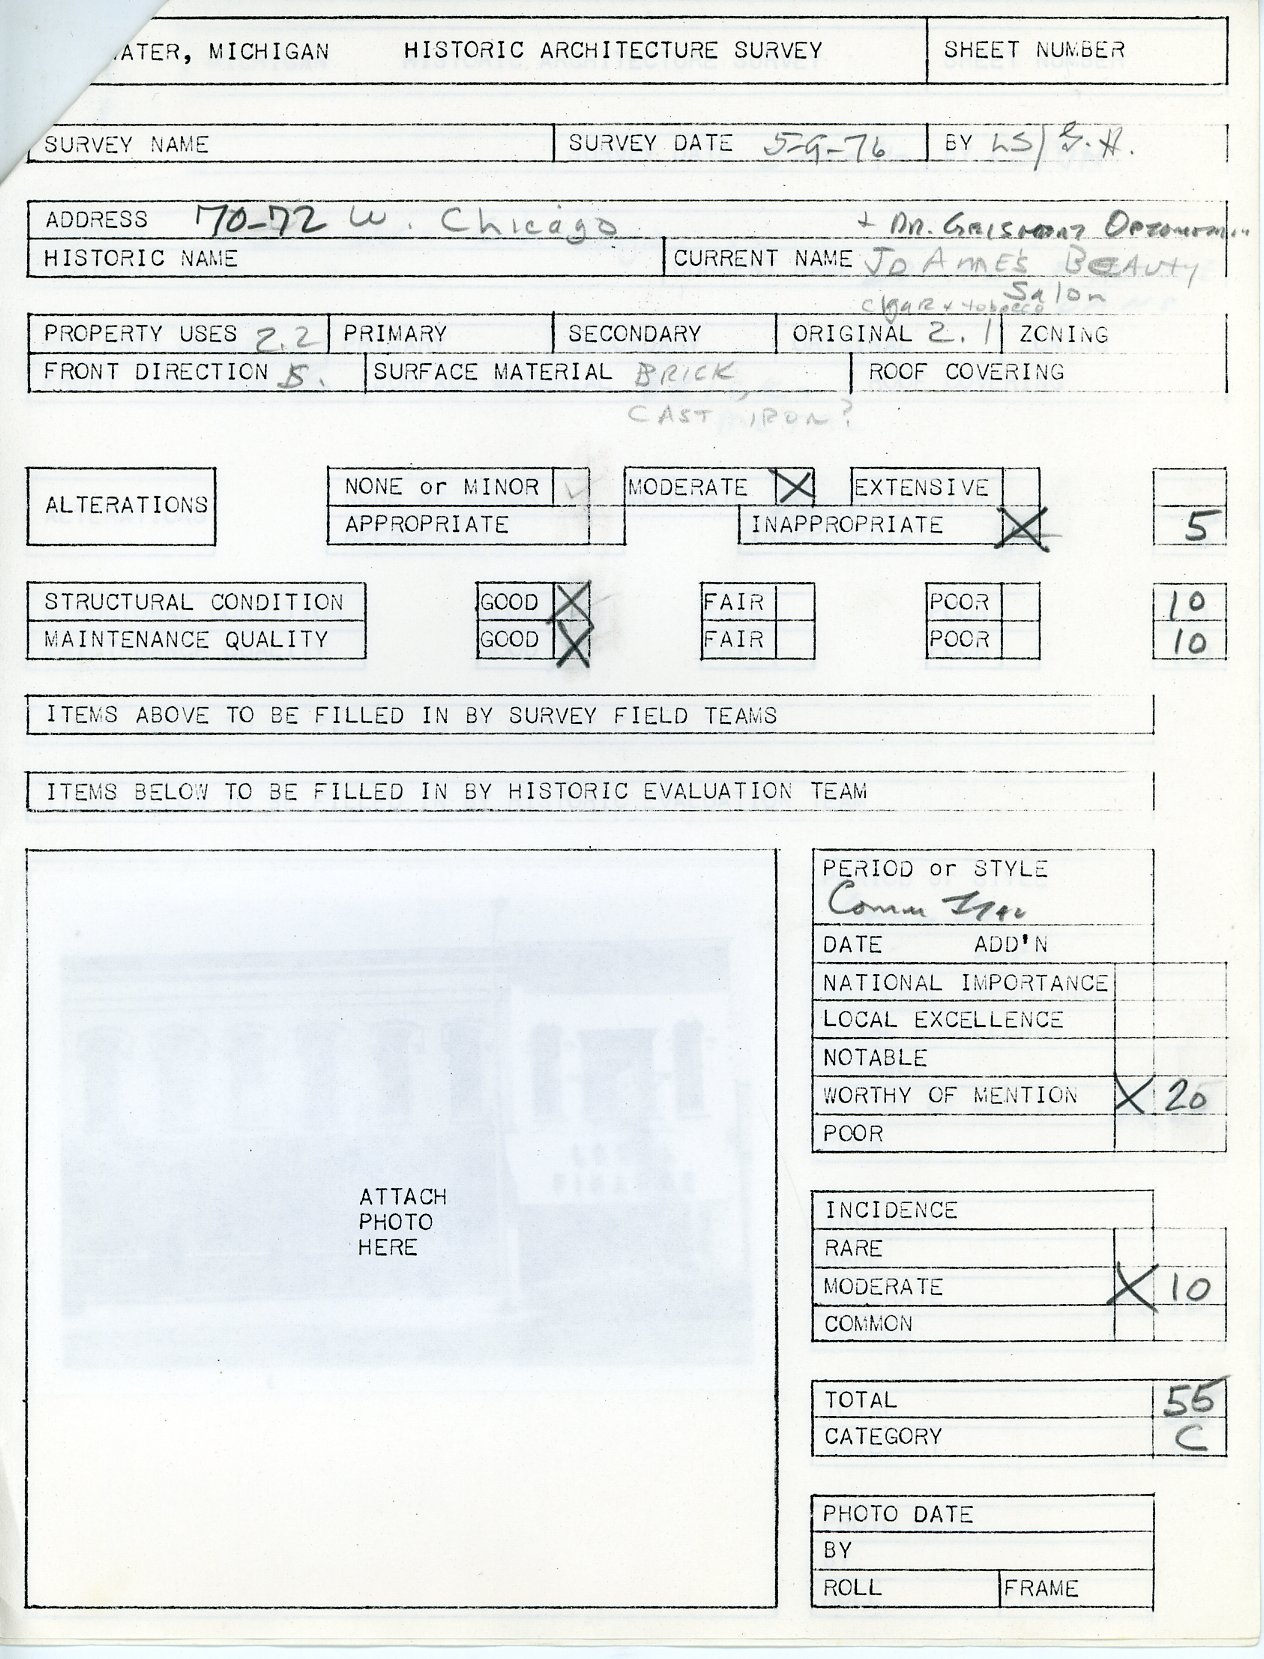 ATER, MICHIGAN HISTORIC ARCHITECTURE SURVEY SHEET NUMBER
SURVEY NAME SURVEY DATE 5-9-76 BY LS/G.H.
ADDRESS 70-72 W. Chicago + DR. Optometr
HISTORIC NAME CURRENT NAME Jo Anne's BEAUTY
Salon
cigar & tobacco
PROPERTY USES 2.2 PRIMARY SECONDARY ORIGINAL 2.1 ZONING
FRONT DIRECTION S. SURFACE MATERIAL BRICK, ROOF COVERING
CAST IRON?
ALTERATIONS NONE or MINOR ✓ MODERATE X EXTENSIVE
APPROPRIATE INAPPROPRIATE X 5
STRUCTURAL CONDITION GOOD X FAIR POOR 10
MAINTENANCE QUALITY GOOD X FAIR POOR 10
ITEMS ABOVE TO BE FILLED IN BY SURVEY FIELD TEAMS
ITEMS BELOW TO BE FILLED IN BY HISTORIC EVALUATION TEAM
ATTACH
PHOTO
HERE
PERIOD or STYLE
Comm Ital
DATE ADD'N
NATIONAL IMPORTANCE
LOCAL EXCELLENCE
NOTABLE
WORTHY OF MENTION X 20
POOR
INCIDENCE
RARE
MODERATE X 10
COMMON
TOTAL 55
CATEGORY C
PHOTO DATE
BY
ROLL FRAME